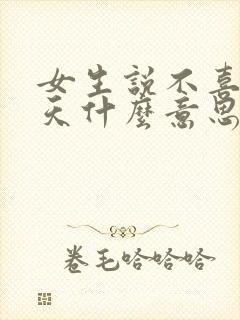 女生説不喜
天什麼意思
卷毛哈哈哈